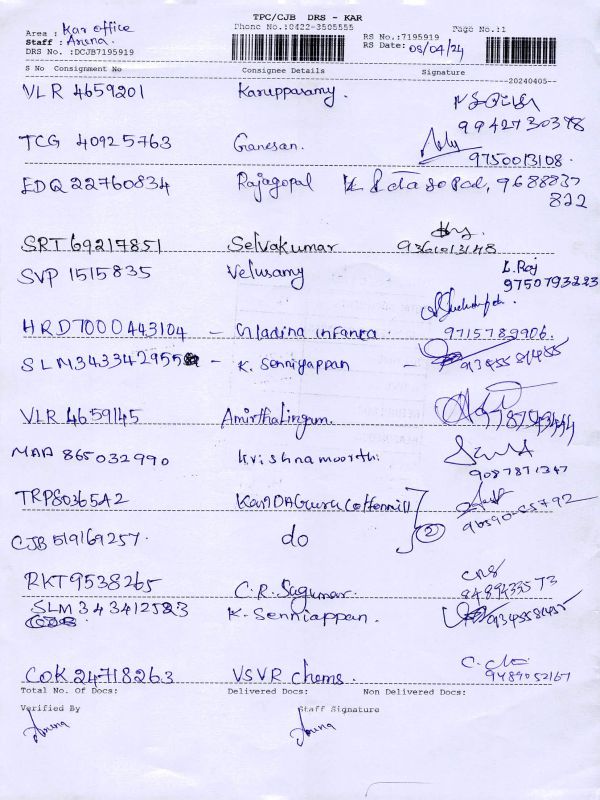 TPC/CJB DRS - KAR
Area : Kar office
Phone No.:0422-3505555
Page No.:1
Staff : Aruna.
RS No.:7195919
DRS No. :DCJB7195919
RS Date: 05/04/24
S No Consignment No Consignee Details Signature
20240405
VLR 4659201 Karuppasamy.
9942730378
TCG 40925763 Ganesan.
9750013108.
EDQ 22760834 Rajagopal 9688837
822
SRT 69217851 Selvakumar 9361013148
SVP 1515835 Velusamy L.Raj
9750793223
HRD7000443104 - Gladina infanta. 9715789906.
SLM343342955 - K. Senniyappan - 9345581455
VLR 4659145 Amirthalingam.
MAA 865032990 Krishnamoorthi
9087871347
TRP8036542 KanDAGuru Cottonmill
CJB 519169257. do (2)
RKT9538265 C.R. Sagumar. CRS
8489433573
SLM343412523 K. Senniappan.
COK 24718263 VSVR chems.
9489052167
Total No. Of Docs: Delivered Docs: Non Delivered Docs:
Verified By Staff Signature
Aruna Aruna